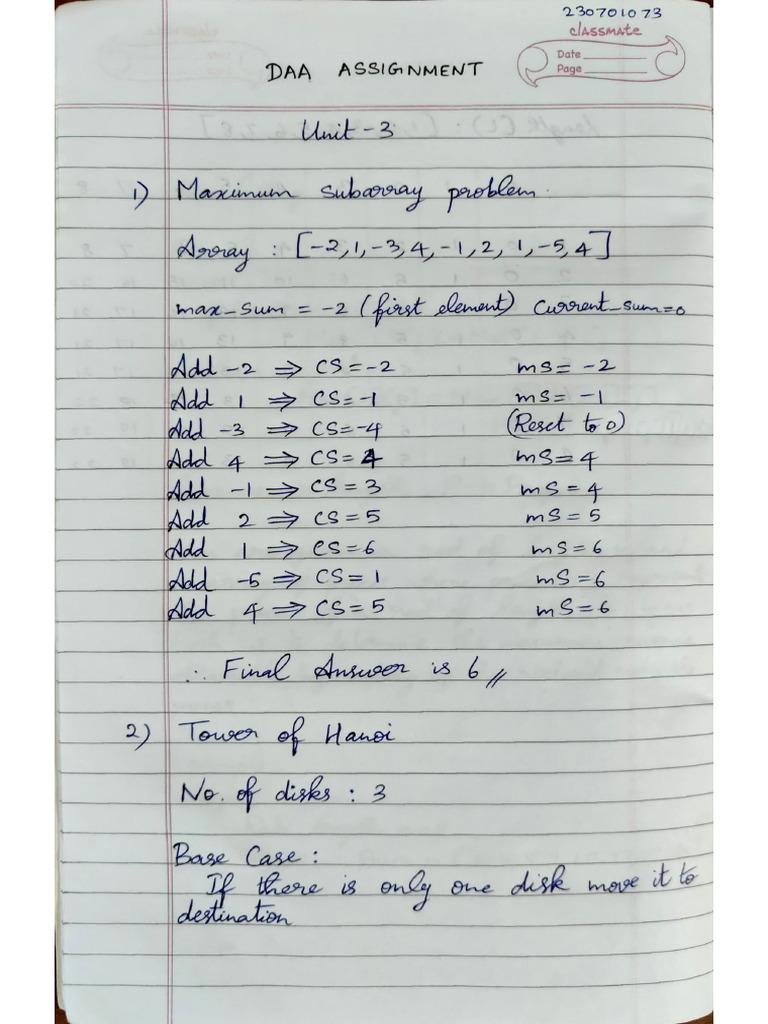 230701073
classmate
Date
Page
DAA ASSIGNMENT
Unit - 3
1) Maximum subarray problem.
Array : [-2, 1, -3, 4, -1, 2, 1, -5, 4]
max_sum = -2 (first element) current_sum=0
Add -2 ⇒ CS = -2 mS = -2
Add 1 ⇒ CS = -1 mS = -1
Add -3 ⇒ CS = -4 (Reset to 0)
Add 4 ⇒ CS = 4 mS = 4
Add -1 ⇒ CS = 3 mS = 4
Add 2 ⇒ CS = 5 mS = 5
Add 1 ⇒ CS = 6 mS = 6
Add -5 ⇒ CS = 1 mS = 6
Add 4 ⇒ CS = 5 mS = 6
∴ Final Answer is 6 //
2) Tower of Hanoi
No. of disks : 3
Base Case :
If there is only one disk move it to
destination